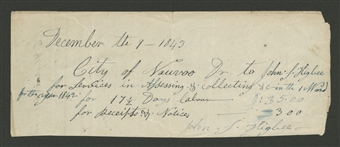 December the 1 - 1843
City of Nauvoo Dr to John S. Higbee
for Services in Assessing & collecting &c in the 1 Ward
for the year 1842
for 17½ Days Labour — $35.00
for Receipts & Notices — 3 00
John S. Higbee